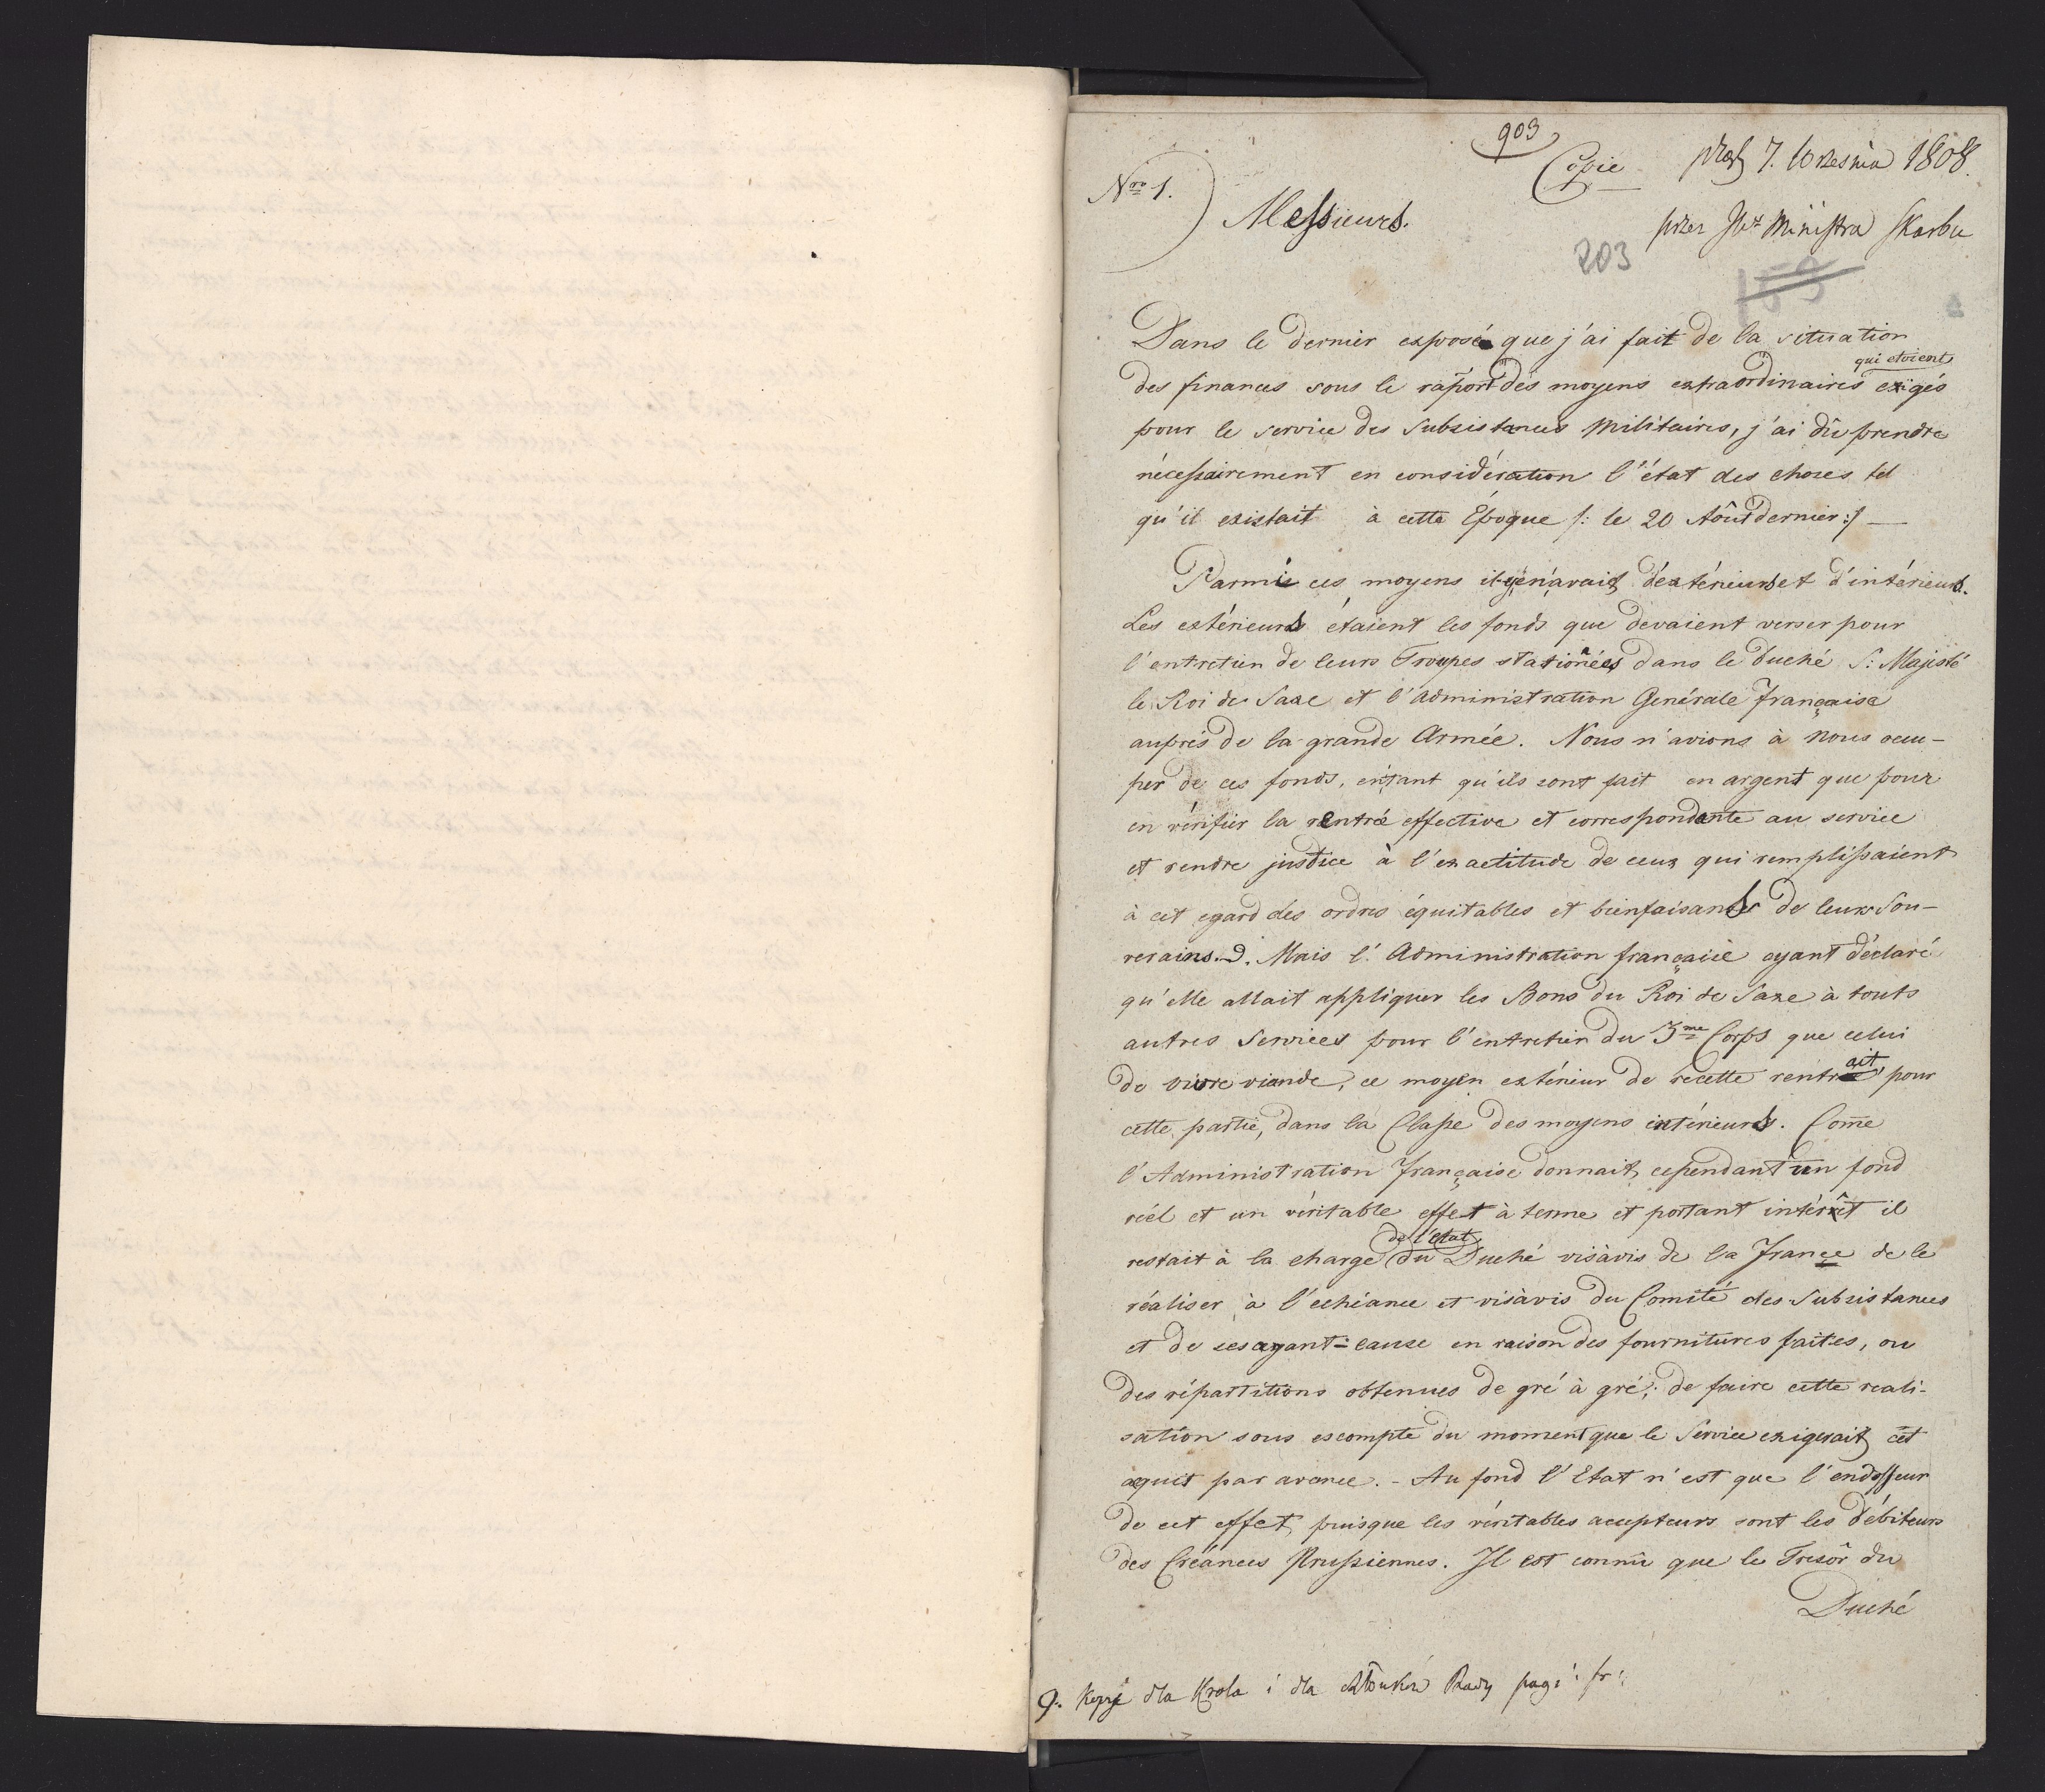 903
Copie
7. Września 1808.
Nro 1.
Messieurs.
przez Minïstra Skarbu
203
159
Dans le dernier exposé que j'ai fait de la situation
qui etoient
des finances sous le raport des moyens extraordinaires exigés
pour le service des Subsistances Militaires, j'ai dû prendre
nécessairement en considération l'état des choses tel
qu'il existait à cette Époque /: le 20 Aôut dernier :/ —
Parmis ces moyens il y en avait d'extérieurs et d'intérieurs.
Les extérieurs étaient les fonds que devaient verser pour
l'entretien de leurs Troupes stationées dans le Duché S: Majesté
le Roi de Saxe et l'administration Générale française
auprès de la grande Armée. Nous n'avions à nous occu-
per de ces fonds, entant qu'ils sont fait en argent que pour
en vérifier la rentré effective et correspondante au service
et rendre justice à l'exactitude de ceux qui remplissaient
à cet egard des ordres équitables et bienfaisants de leurs Sou-
verains. Mais l'Administration française ayant déclaré
qu'elle allait appliquer les Bons du Roi de Saxe à touts
autres Services pour l'entretien du 3me Corps que celui
de vivre viande, ce moyen extérieur de recette rentrait, pour
cette partie, dans la Classe des moyens intérieurs. Come
l'Administration française donnait cependant un fond
réel et un véritable effet à terme et portant intérêt il
de l'état
restait à la charge du Duché visàvis de la France de le
réaliser à l'echéance et visàvis du Comité des Subsistances
et de ses ayant=cause en raison des fournitures faites, ou
des répartitions obtenues de gré à gré; de faire cette reali-
sation sous escompte du moment que le Service exigerait cet
aquit par avance. - Au fond l'Etat n'est que l'endosseur
de cet effet, puisque les véritables accepteurs sont les débiteurs
des Créances Prussiennes. Il est connû que le Tresôr du
Duché
Kopje dla Krola i dla Członków Rady